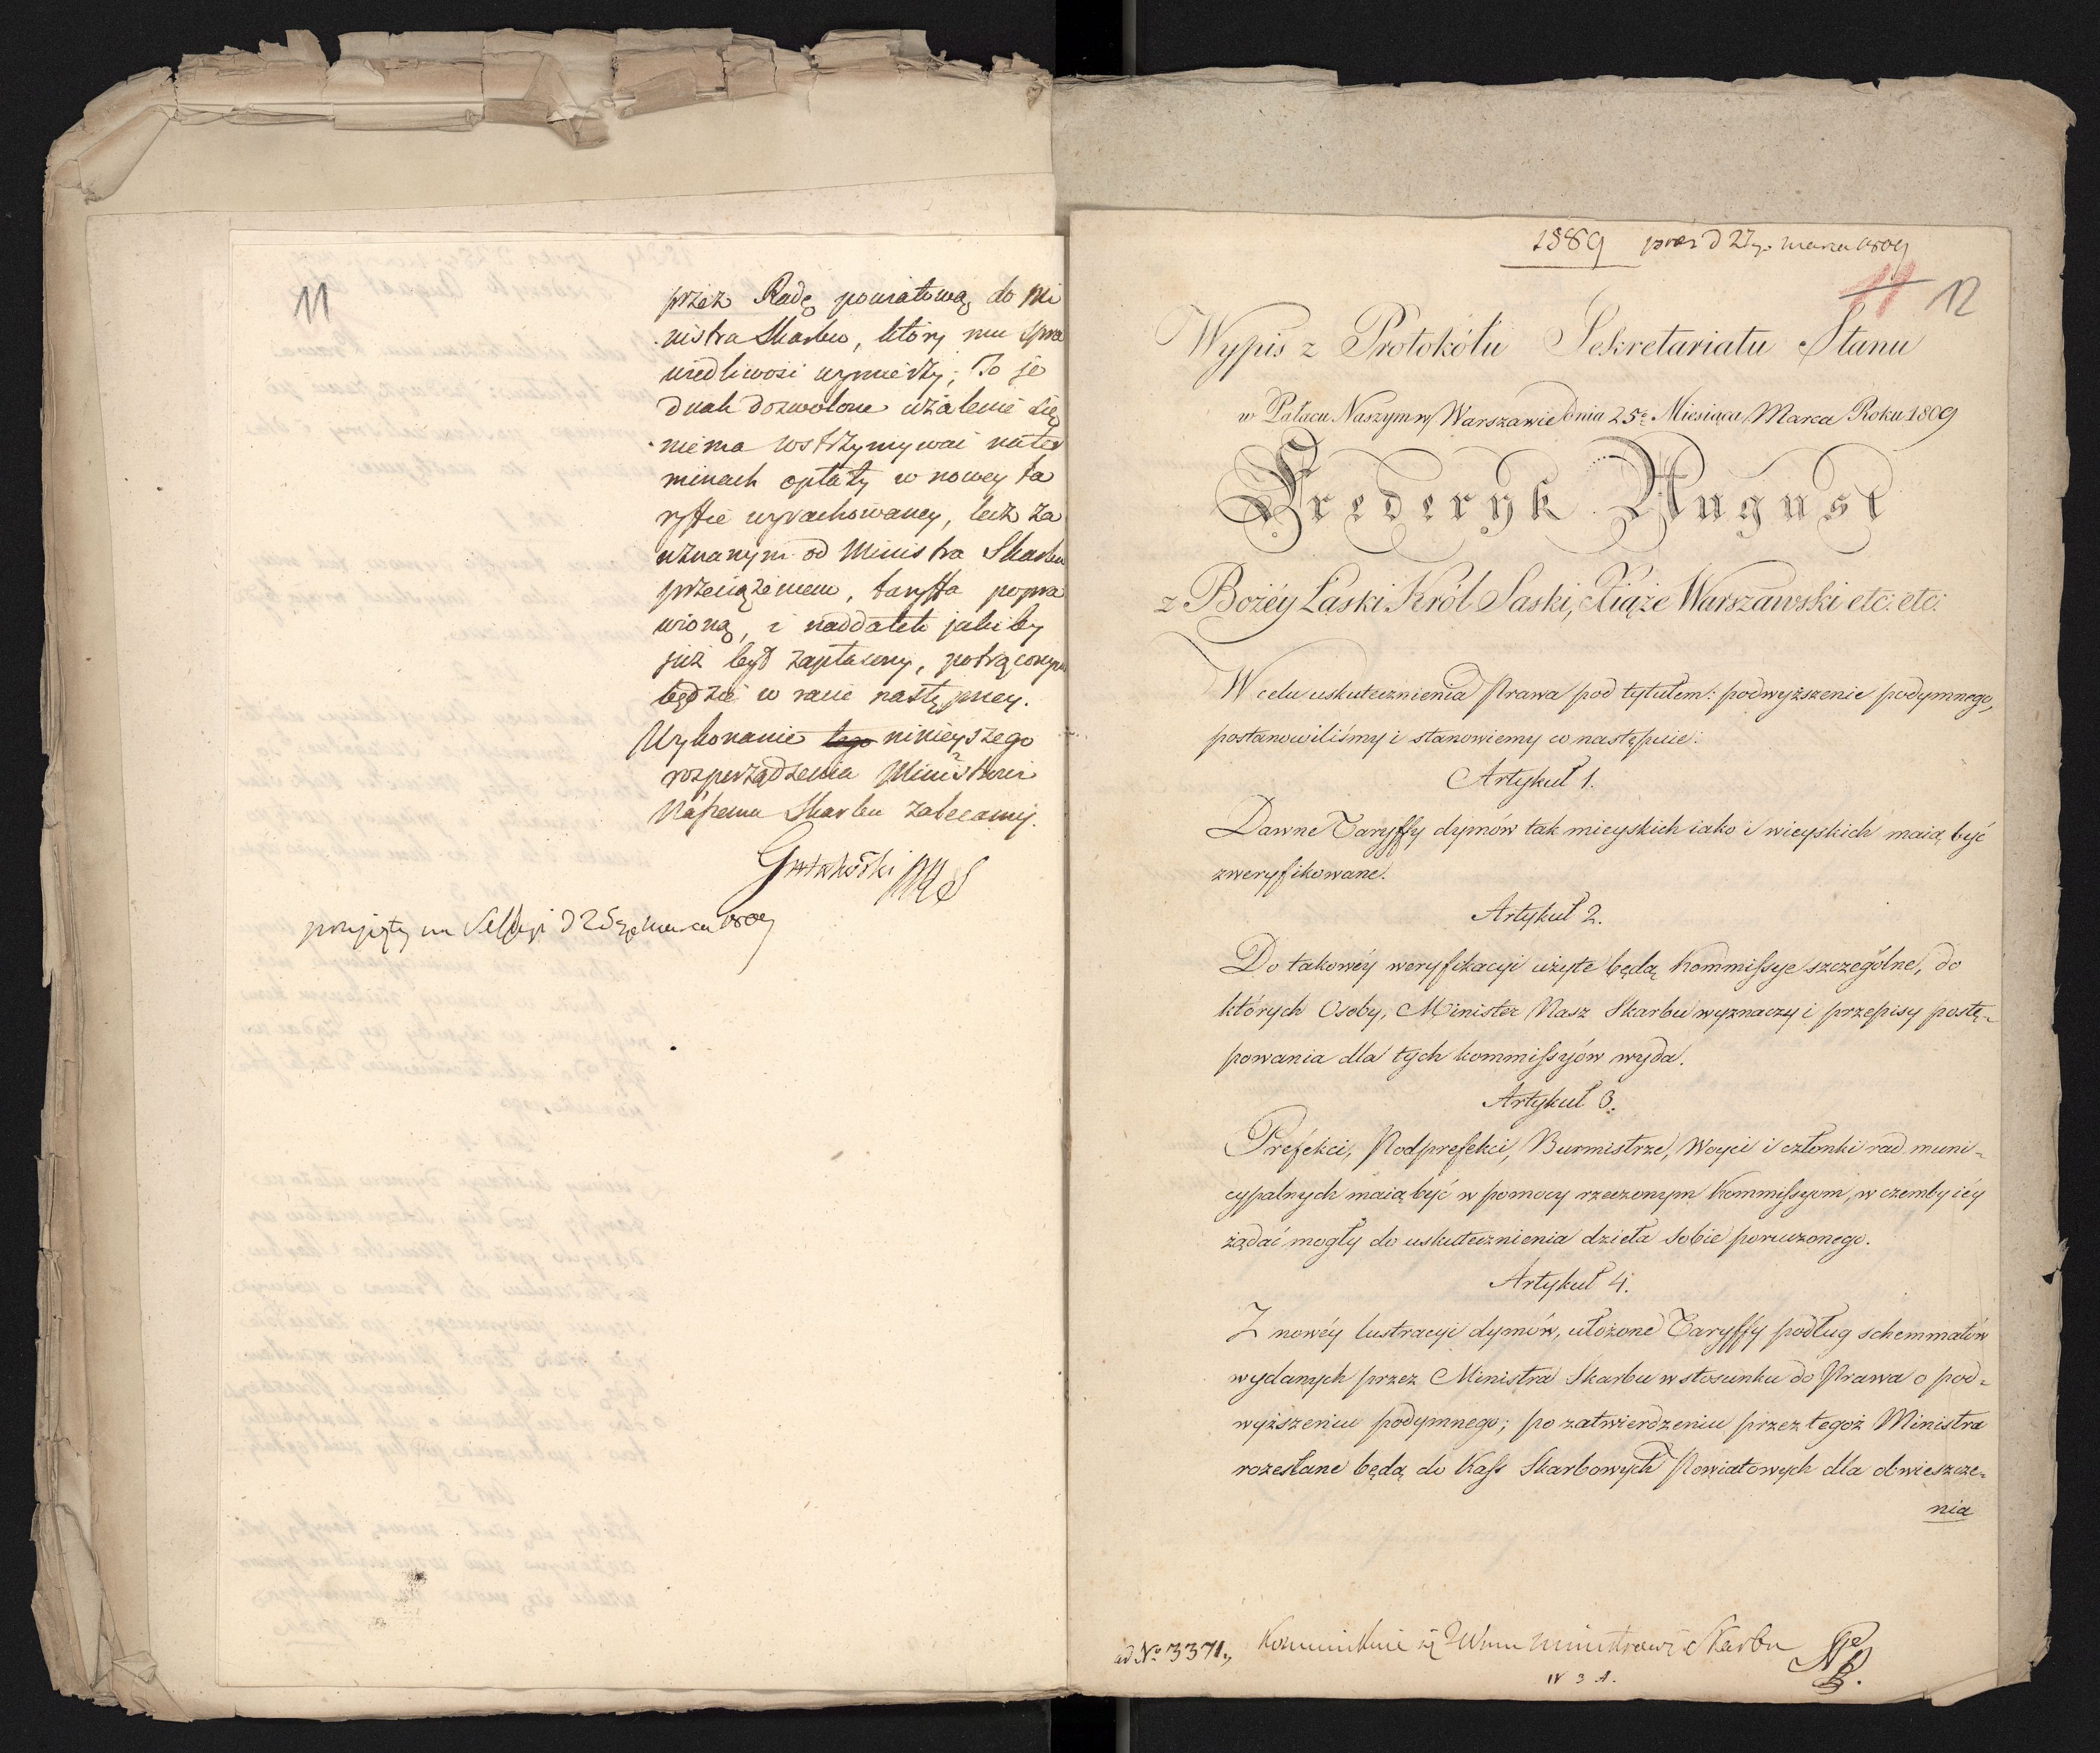 11
przez Radę powiatową do Mi
nistra Skarbu, który mu spra
wiedliwość wymierzy; To je
dnak dozwolone użalenie się
nie ma wstrzymywać w ter
minach opłaty w nowey ta
ryffie wyrachowaney, lecz za
uznanym od Ministra Skarbu
przeciążeniem, taryffa popra
wioną, i naddatek jakiby
już był zapłacony, potrącony
będzie w racie następney.
Wykonanie tego ninieyszego
rozporządzenia Ministrowi
Naszemu Skarbu zalecamy.
przyięty na Sessyi d 25go Marca 1809
1889 prez d 27go marca 1809
11 12
Wypis z Protokółu Sekretariatu Stanu
w Pałacu Naszym w Warszawie dnia 25o Miesiąca Marca Roku 1809
Frederyk August
z Bożéy Łaski Król Saski, Xiąże Warszawski etc: etc:
W celu uskutecznienia Prawa pod tytułem: podwyższenie podymnego,
postanowiliśmy i stanowiemy co następuie:
Artykuł 1.
Dawne Taryffy dymów tak mieyskich iako i wieyskich maią być
zweryfikowane.
Artykuł 2.
Do takowéy weryfikacyi użyte będą Kommissye szczególne, do
których Osoby, Minister Nasz Skarbu wyznaczy i przepisy postę-
powania dla tych kommissyów wyda.
Artykuł 3.
Prefekci, Podprefekci, Burmistrze, Woyci i członki rad muni-
cypalnych maią być w pomocy rzeczonym Kommissyom, w czemby iéy
żądać mogły do uskutecznienia dzieła sobie poruczonego.
Artykuł 4.
Z nowéy lustracyi dymów, ułożone Taryffy podług schemmatów
wydanych przez Ministra Skarbu w stosunku do Prawa o pod-
wyższeniu podymnego; po zatwierdzeniu przez tegoż Ministra
rozesłane będą do Kass Skarbowych Powiatowych dla obwieszcze-
nia
ad No 3371., Kommunikuie się Ministrowi Skarbu